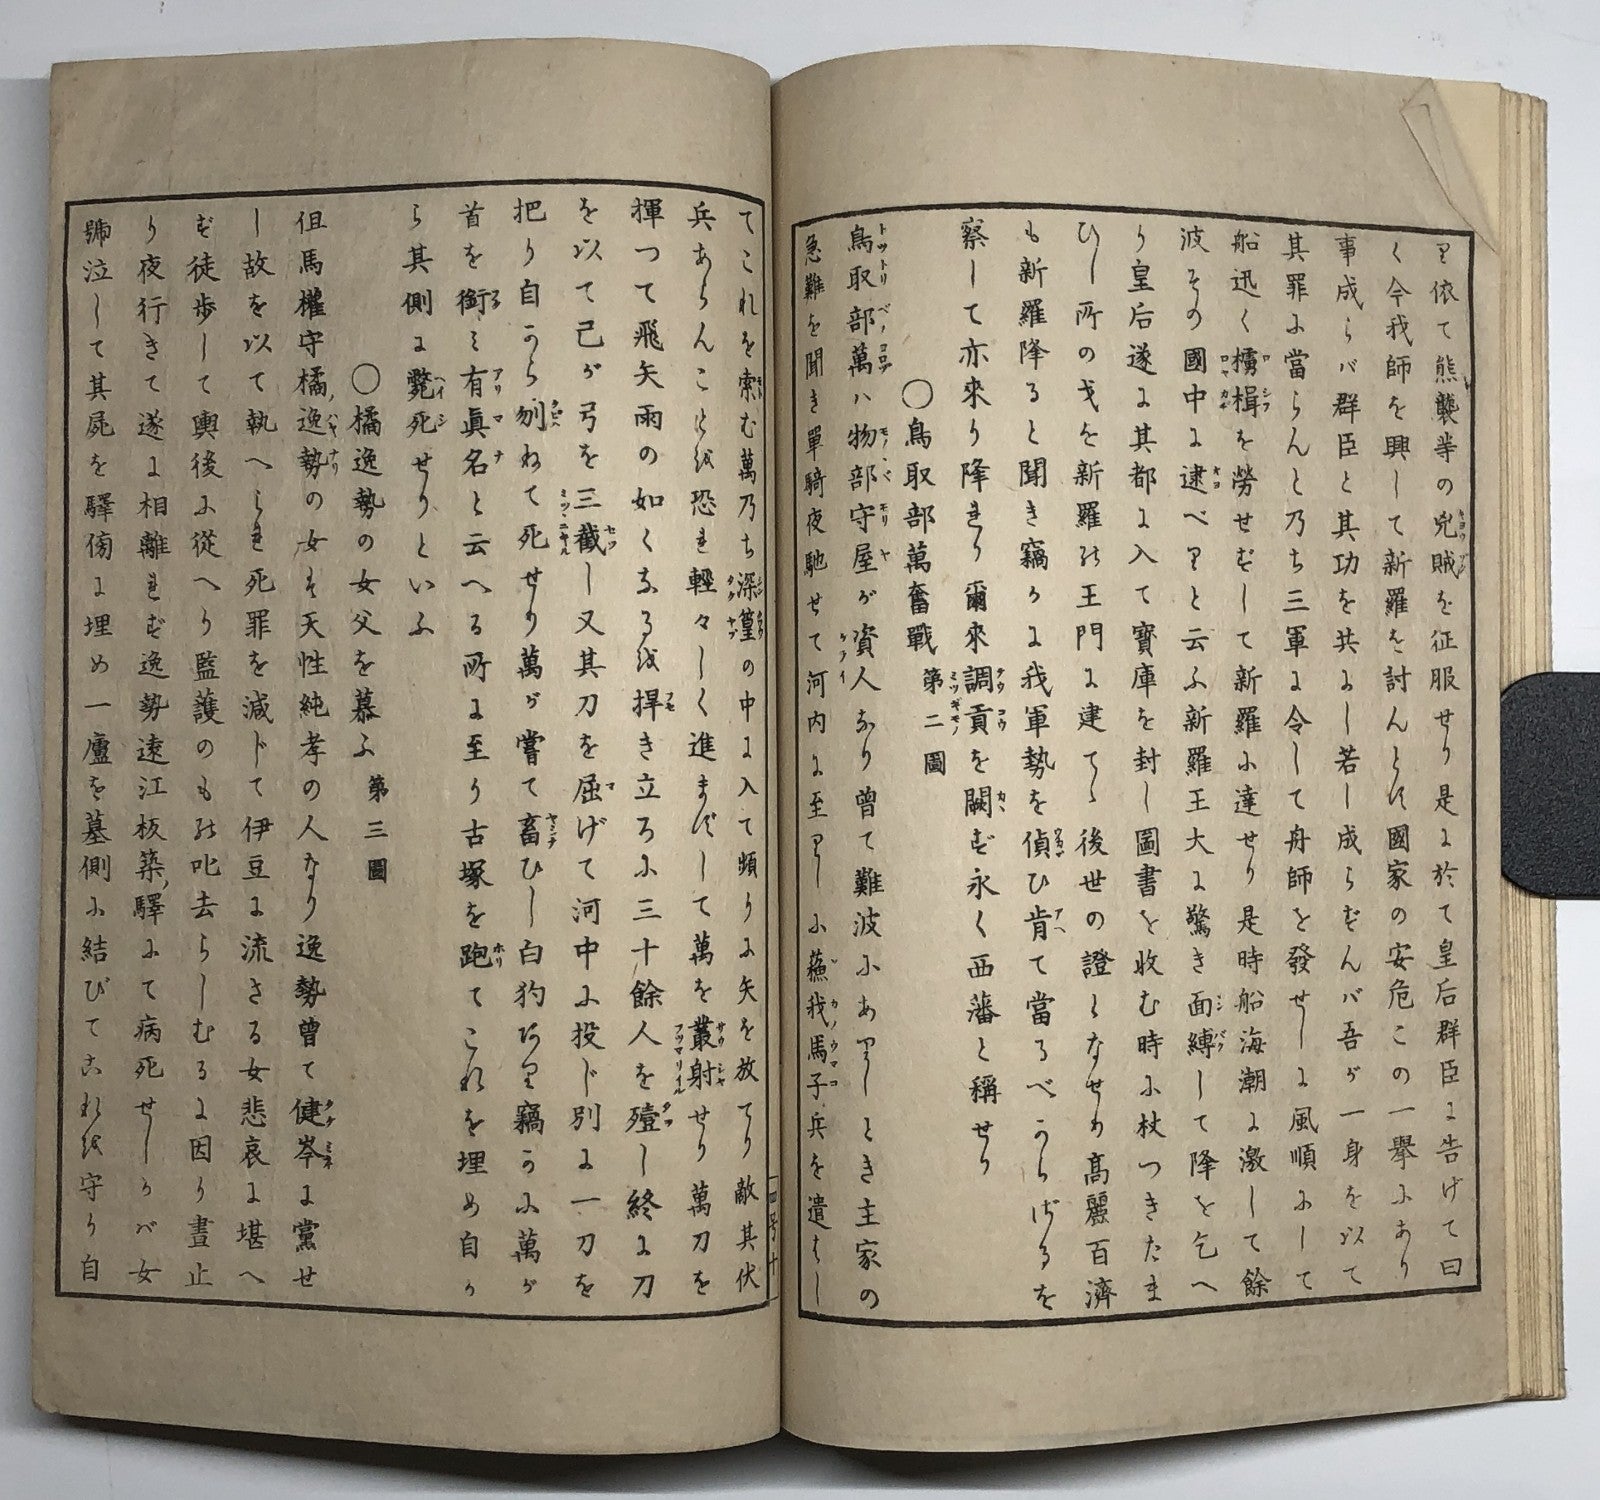 り依て熊襲等の兇賊を征服せり是に於て皇后群臣に告げて曰
く今我師を興して新羅を討んとす國家の安危この一擧にあり
事成らバ群臣と其功を共にし若し成らずんバ吾が一身を以て
其罪に當らんと乃ち三軍に令して舟師を發せしに風順にして
船迅く櫓楫を勞せずして新羅に達せり是時船海潮に激して餘
波その國中に逮べりと云ふ新羅王大に驚き面縛して降を乞へ
り皇后遂に其都に入て寶庫を封し圖書を收む時に杖つきたま
ひし所の戈を新羅の王門に建てゝ後世の證となせり高麗百濟
も新羅降ると聞き竊かに我軍勢を偵ひ肯て當るべからざるを
察して亦來り降れり爾來調貢を闕ず永く西藩と稱せり
〇鳥取部萬奮戰 第二圖
鳥取部萬ハ物部守屋が資人なり曾て難波にありしとき主家の
急難を聞き單騎夜馳せて河内に至りしに蘓我馬子兵を遣はし
てこれを索む萬乃ち深篁の中に入て頻りに矢を放てり敵其伏
兵あらんことを恐れ輕々しく進まずして萬を叢射せり萬刀を
揮つて飛矢雨の如くなるを捍き立ろに三十餘人を殪し終に刀
を以て己が弓を三截し又其刀を屈げて河中に投じ別に一刀を
把り自から刎ねて死せり萬が嘗て畜ひし白犳あり竊かに萬が
首を銜ミ有眞名と云へる所に至り古塚を跑てこれを埋め自か
ら其側に斃死せりといふ
〇橘逸勢の女父を慕ふ 第三圖
但馬權守橘逸勢の女は天性純孝の人なり逸勢曾て健岑に黨せ
し故を以て執へられ死罪を減じて伊豆に流さる女悲哀に堪へ
ず徒歩して輿後に從へり監護のもの叱去らしむるに因り晝止
り夜行きて遂に相離れず逸勢遠江板築驛にて病死せしかバ女
號泣して其屍を驛傍に埋め一廬を墓側に結びてこれを守り自